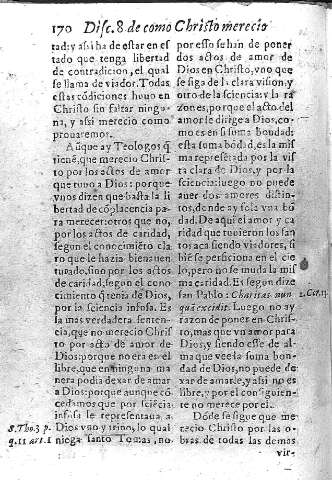 170 Disc. 8. de como Christo merecio
tad: y assi ha de estar en es
tado que tenga libertad
de contradicion, el qual
se llama de viador. Todas
estas cõdiciones huuo en
Christo sin faltar ningu-
na, y assi merecio como
prouaremos.
Aũque ay Teologos q̃
tienẽ, que merecio Chris-
to por los actos de amor
que tuuo a Dios: porque
vnos dizen que basta la li
bertad de cõplacencia pa
ra merecer: otros que no,
por los actos de caridad,
segun el conocimiẽto cla
ro que le hazia bienauen
turado, sino por los actos
de caridad, segun el cono
cimiento q̃ tenia de Dios,
por la sciencia infusa. Es
la mas verdadera senten-
cia, que no merecio Christ
to por acto de amor de
Dios: porque no era es li-
bre, que en ninguna ma
nera podia dexar de amar
a Dios: porque aunque cõ
cedamos que por sciẽcia
infusa se representaua a
Dios vno y trino, lo qual
niega santo Tomas, no,
S. Tho. 3. p.
q. 11. art. 1
por esso se han de poner
dos actos de amor de
Dios en Christo, vno que
se siga de la clara vision, y
otro de la sciencia: y la ra
zones, porque el acto del
amor se dirige a Dios, co-
mo es en si suma bondad:
esta suma bõdad, es la mis
ma represẽtada por la vis
ta clara de Dios, y por la
sciencia: luego no puede
auer dos amores distin-
tos, donde ay sola vna bõ
dad. De aqui el amor y ca
ridad que tuuieron los san
tos aca siendo viadores, si
biẽ se perficiona en el cie
lo, pero no se muda la mis
ma caridad. Es segun dize
san Pablo: Charitas nun
quã excidit. Luego no ay
1. Cor. 13.
razon de poner en Chris-
to, mas que vn amor para
Dios, y siendo esse de al
ma que vee la suma bon-
dad de Dios, no puede de
xar de amarle, y assi no es
libre, y por el consiguien-
te no merece por el.
Dõde se sigue que me
recio Christo por las o-
bras de todas las demas
vir-